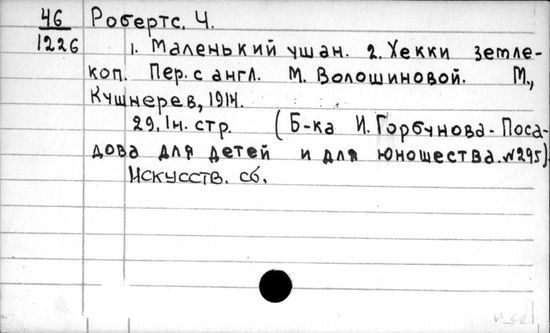 46 Робертс, Ч.
1226 1. Маленький ушан. 2. Хекки земле-
коп. Пер. с англ. М. Волошиновой. М.,
Кушнерев, 1914.
29, 1н. стр. (Б-ка И. Горбунова-Поса-
дова для детей и для юношества. №295).
Искусств. сб.